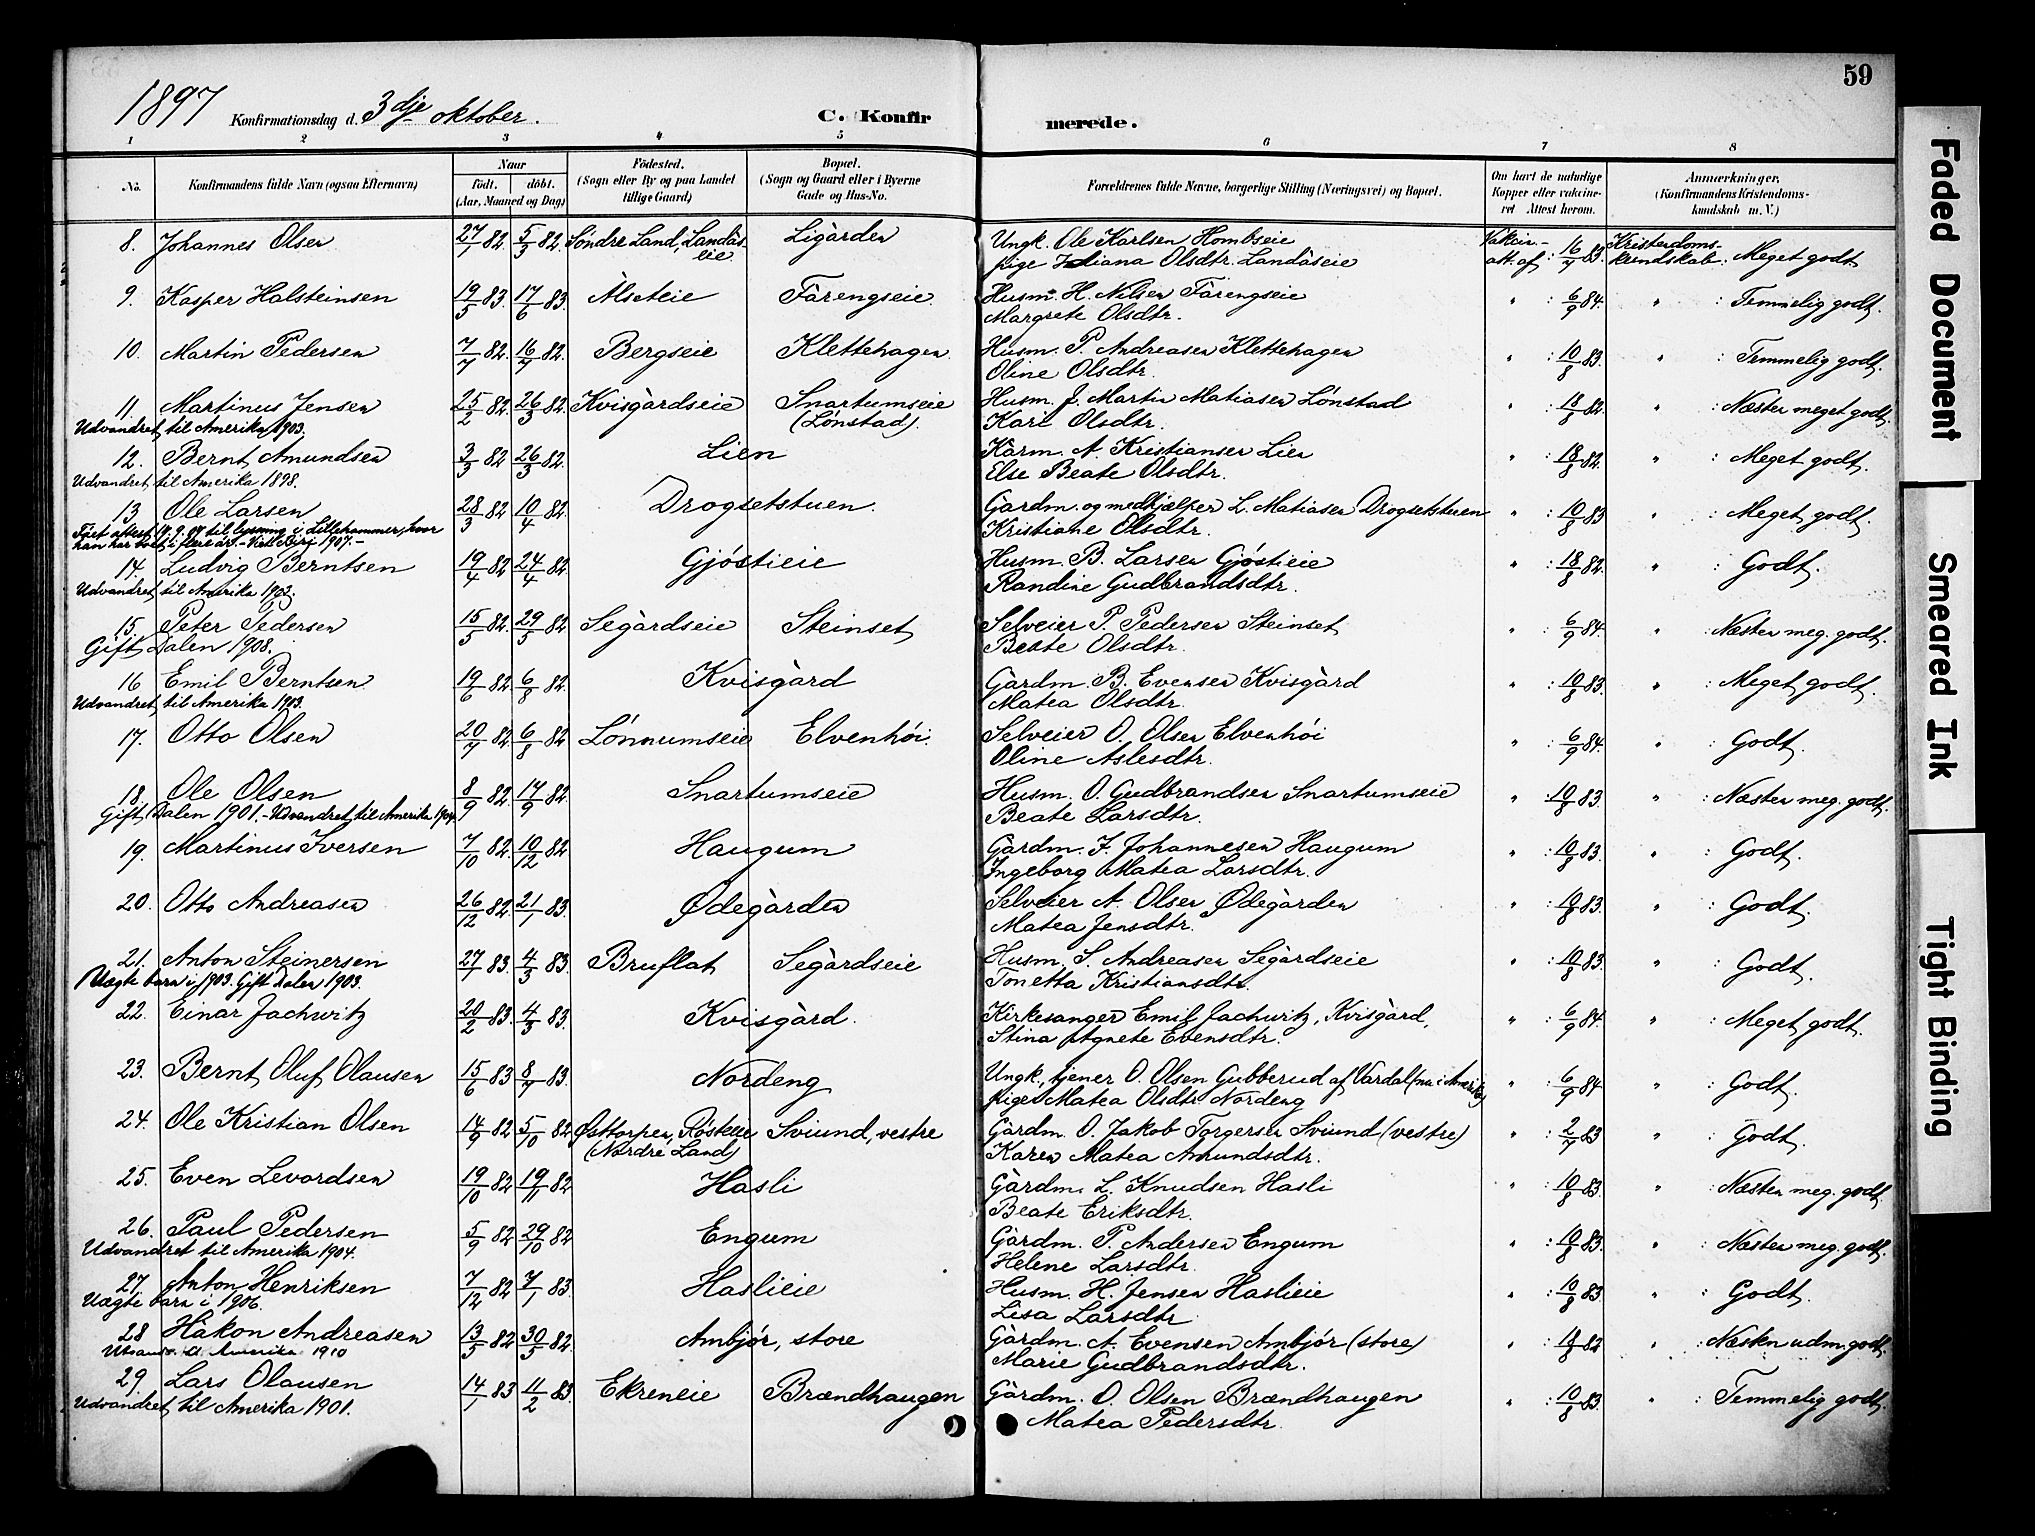 59
1897 Konfirmationsdag d. 3dje oktober. C. Konfir merede.
1 2 3 4 5 6 7 8
No. Konfirmandens fulde Navn (ogsaa Efternavn) Naar født. døbt. (Aar, Maaned og Dag) Fødested. (Sogn eller By og paa Landet tillige Gaard) Bopæl. (Sogn og Gaard eller i Byerne Gade og Hus-No. Forældrenes fulde Navne, borgerlige Stilling (Næringsvei) og Bopæl. Om havt de naturlige Kopper eller vakcineret Attest herom. Anmærkninger. (Konfirmandens Kristendomskundskab m. V.)
8. Johannes Olsen 27/1 82. 5/3 82. Søndre Land, Landåseie. Ligården Ungk. Ole Karlsen Hombseie Vakcin.- att. af : 16/7 83. Kristendomskundskab : Meget godt.
pige Olsdtr. Landåseie
9. Kasper Halsteinsen 19/5 83. 17/6 83. Ålseteie Fårengseie. Husm. H. Nilsen Fårengseie " : 6/9 84. " : Temmelig godt.
Margrete Olsdtr.
10. Martin Pedersen 7/7 82. 16/7 82. Bergseie Klettehagen Husm. P. Andreasen Klettehagen " : 10/8 83. " : Temmelig godt.
Oline Olsdtr.
11. Martinus Jensen 25/2 82. 26/3 82. Kvisgårdseie Snartumseie (Lønstad). Husm. J. Martin Matiasen Lønstad " : 18/8 82. " : Næsten meget godt.
Udvandret til Amerika 1903. Kari Olsdtr.
12. Bernt Amundsen 3/3 82 26/3 82. Lien Kårm. A. Kristiansen Lien " : 18/8 82. " : Meget godt.
Udvandret til Amerika 1898. Else Beate Olsdtr.
13. Ole Larsen 28/3 82 10/4 82. Drogsetstuen. Gardm. og medhjælper L. Matiasen Drogsetstuen " : 10/8 83 " : Meget godt.
Fået attest til lysning i Lillehammer, hvor Kristiane Olsdtr.
han har boet i flere år. - 1907. -
14. Ludvig Berntsen 19/4 82 24/4 82 Gjøstieie Husm. B. Larsen Gjøstieie " : 18/8 82. " : Godt.
Udvandret til Amerika 1903. Randine Gudbrandsdtr.
15. Peter Pedersen 15/5 82. 29/5 82 Segårdseie Steinset Selveier P. Pedersen Steinset " : 6/9 84. " : Næsten meg. godt.
Gift Dalen 1908. Beate Olsdtr.
16 Emil Berntsen 19/6 82. 6/8 82. Kvisgård Gårdm. B. Evensen Kvisgård " : 10/8 83. " : Meget godt.
Udvandret til Amerika 1903. Matea Olsdtr.
17. Otto Olsen 20/7 82. 6/8 82 Lønnumseie Elvenhøi. Selveier O. Olsen Elvenhøi " : 6/9 84. " : Godt.
Oline Aslesdtr.
18. Ole Olsen 8/9 82 17/9 82. Snartumseie Husm. O. Gudbrandsen Snartumseie " : 10/8 83. " : Næsten meg. godt.
Gift Dalen 1901. - Udvandret til Amerika 1904. Beate Larsdtr.
19. Martinus Iversen 7/10 82. 10/12 82 Haugum Gårdm. I. Johannesen Haugum " : 10/8 83. " : Godt.
Ingeborg Matea Larsdtr.
20. Otto Andreasen 26/12 82. 21/1 83. Ødegården Selveier A. Olsen Ødegården " : 10/8 83. " : Godt.
Matea Jensdtr.
21. Anton Steinersen 27/1 83. 4/3 83. Bruflat Segårdseie Husm. S. Andreasen Segårdseie " : 10/8 83. " : Godt.
Uægte barn i 1903. Gift Dalen 1903. Tonetta Kristiansdtr.
22. Einar Jachwitz 20/2 83. 4/3 83. Kvisgård. Kirkesanger Emil Jachwitz, Kvisgård, " : 6/9 84. " : Meget godt.
Stina Agnete Evensdtr.
23. Bernt Oluf Olausen 15/6 83 8/7 83. Nordeng Ungk., tjener O. Olsen Gubberud af Vardal (nu i Amerika) " : 6/9 84 " : Godt.
pige Matea Olsdtr. Nordeng
24. Ole Kristian Olsen 14/9 82. 5/10 82 Østtorpen, Røsteie (Nordre Land) Sviund, vestre Gårdm. O. Jakob Torgersen Sviund (vestre) " : 2/7 83 " : Godt.
Karen Matea Amundsdtr.
25. Even Levordsen 19/10 82 19/11 82 Hasli Gårdm. L. Knudsen Hasli " : 10/8 83. " : Næsten meg. godt.
Beate Eriksdtr.
26. Paul Pedersen 5/9 82 29/10 82 Engum Gårdm. P. Andersen Engum " : 10/8 83. " : Næsten meg. godt.
Udvandret til Amerika 1904. Helene Larsdtr.
27. Anton Henriksen 7/12 82 7/1 83 Haslieie Husm. H. Jensen Haslieie " : 10/8 83. " : Godt.
Uægte barn i 1906. Lisa Larsdtr.
28 Håkon Andreasen 13/5 82 30/5 82. Ambjør, store Gårdm. A. Evensen Ambjør (store) " : 18/8 82 " : Næsten udm. godt.
Amerika 1910 Marie Gudbrandsdtr.
29. Lars Olausen 14/1 83 11/2 83. Ekreneie Brændhaugen Gårdm. O. Olsen Brændhaugen " : 10/8 83. " : Temmelig godt.
Udvandret til Amerika 1901. Matea Pedersdtr.
Faded Document
Smeared Ink
Tight Binding